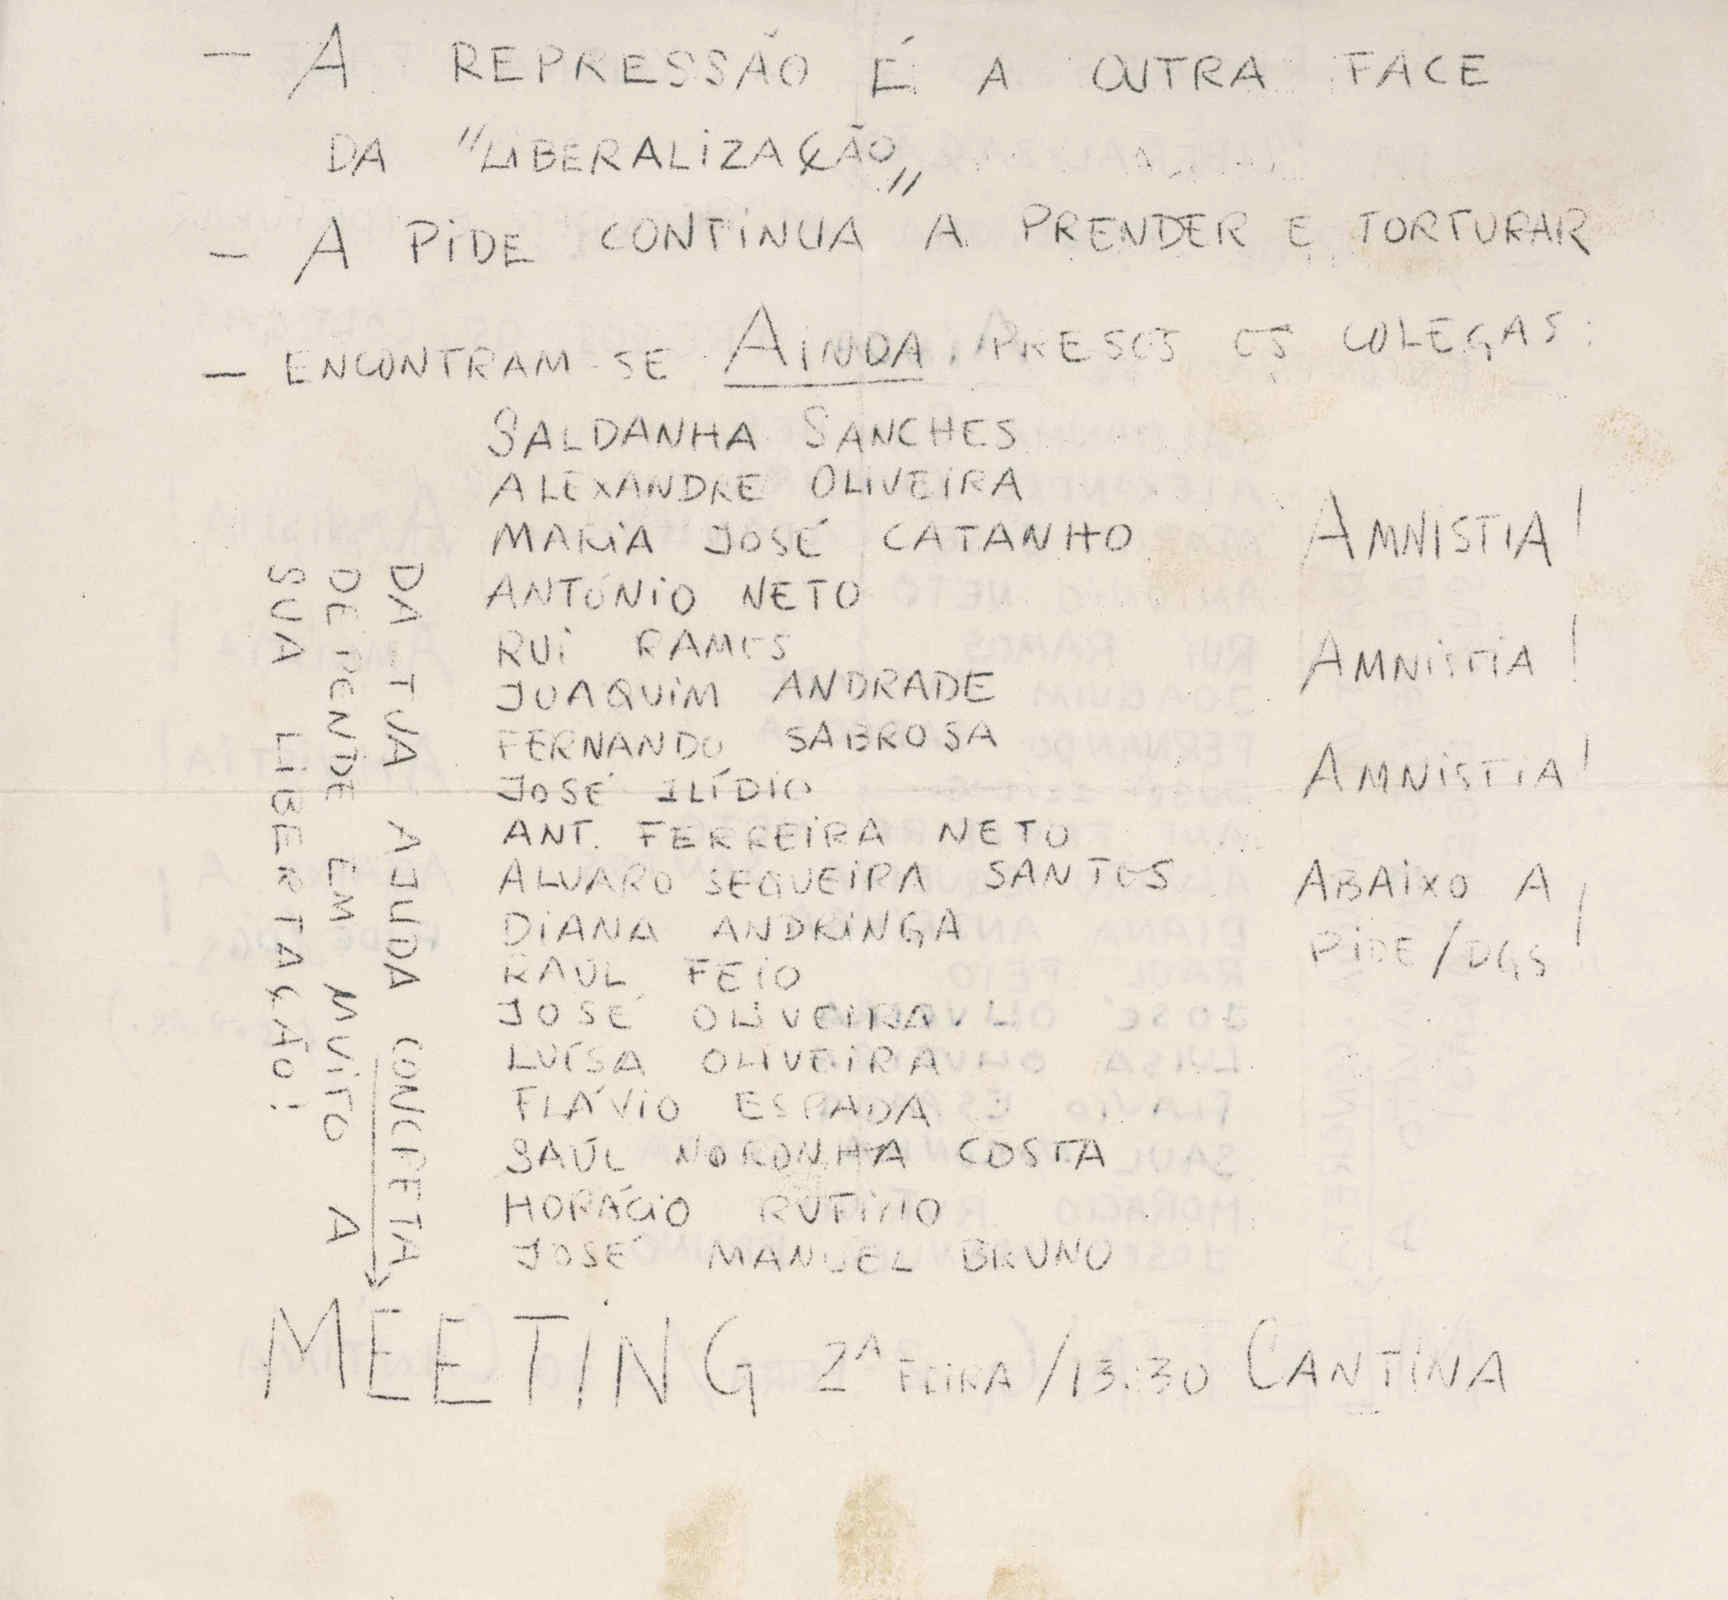 — A REPRESSÃO É A OUTRA FACE
DA "LIBERALIZAÇÃO"
— A PIDE CONTINUA A PRENDER E TORTURAR
— ENCONTRAM-SE AINDA PRESOS OS COLEGAS:
SALDANHA SANCHES
ALEXANDRE OLIVEIRA
MARIA JOSÉ CATANHO
ANTÓNIO NETO
RUI RAMOS
JOAQUIM ANDRADE
FERNANDO SABROSA
JOSÉ ILÍDIO
ANT. FERREIRA NETO
ALVARO SEQUEIRA SANTOS
DIANA ANDRINGA
RAUL FEIO
JOSÉ OLIVEIRA
LUÍSA OLIVEIRA
FLÁVIO ESPADA
SAÚL NORONHA COSTA
HORÁCIO RUFINO
JOSÉ MANUEL BRUNO
AMNISTIA!
AMNISTIA!
AMNISTIA!
ABAIXO A
PIDE/DGS!
DA TUA AJUDA CONCRETA
DEPENDE EM MUITO A
SUA LIBERTAÇÃO!
MEETING 2ª FEIRA/13:30 CANTINA